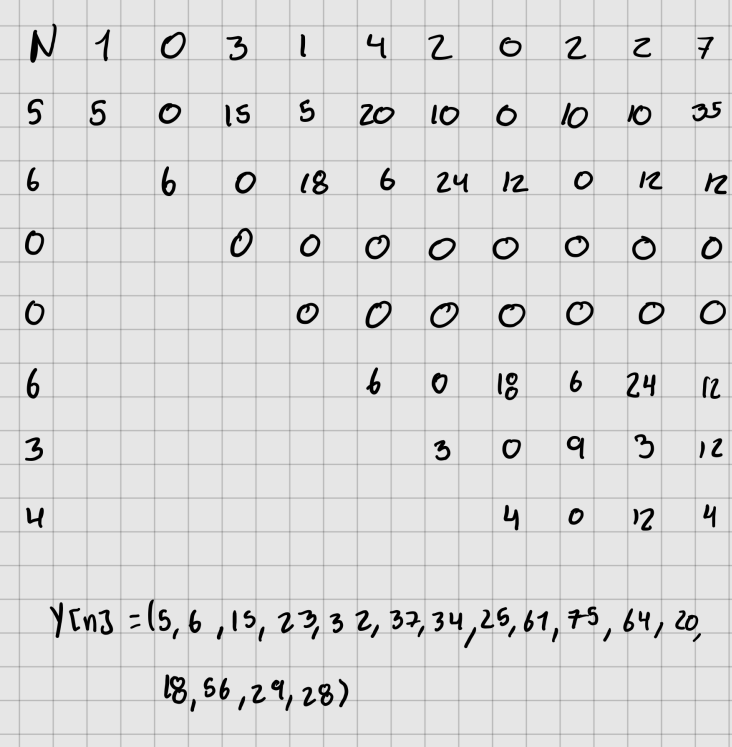 N 1 0 3 1 4 2 0 2 2 7
5 5 0 15 5 20 10 0 10 10 35
6 6 0 18 6 24 12 0 12 12
0 0 0 0 0 0 0 0 0
0 0 0 0 0 0 0 0
6 6 0 18 6 24 12
3 3 0 9 3 12
4 4 0 12 4
Y[n] = (5, 6, 15, 23, 32, 37, 34, 25, 61, 75, 64, 20,
18, 56, 29, 28)